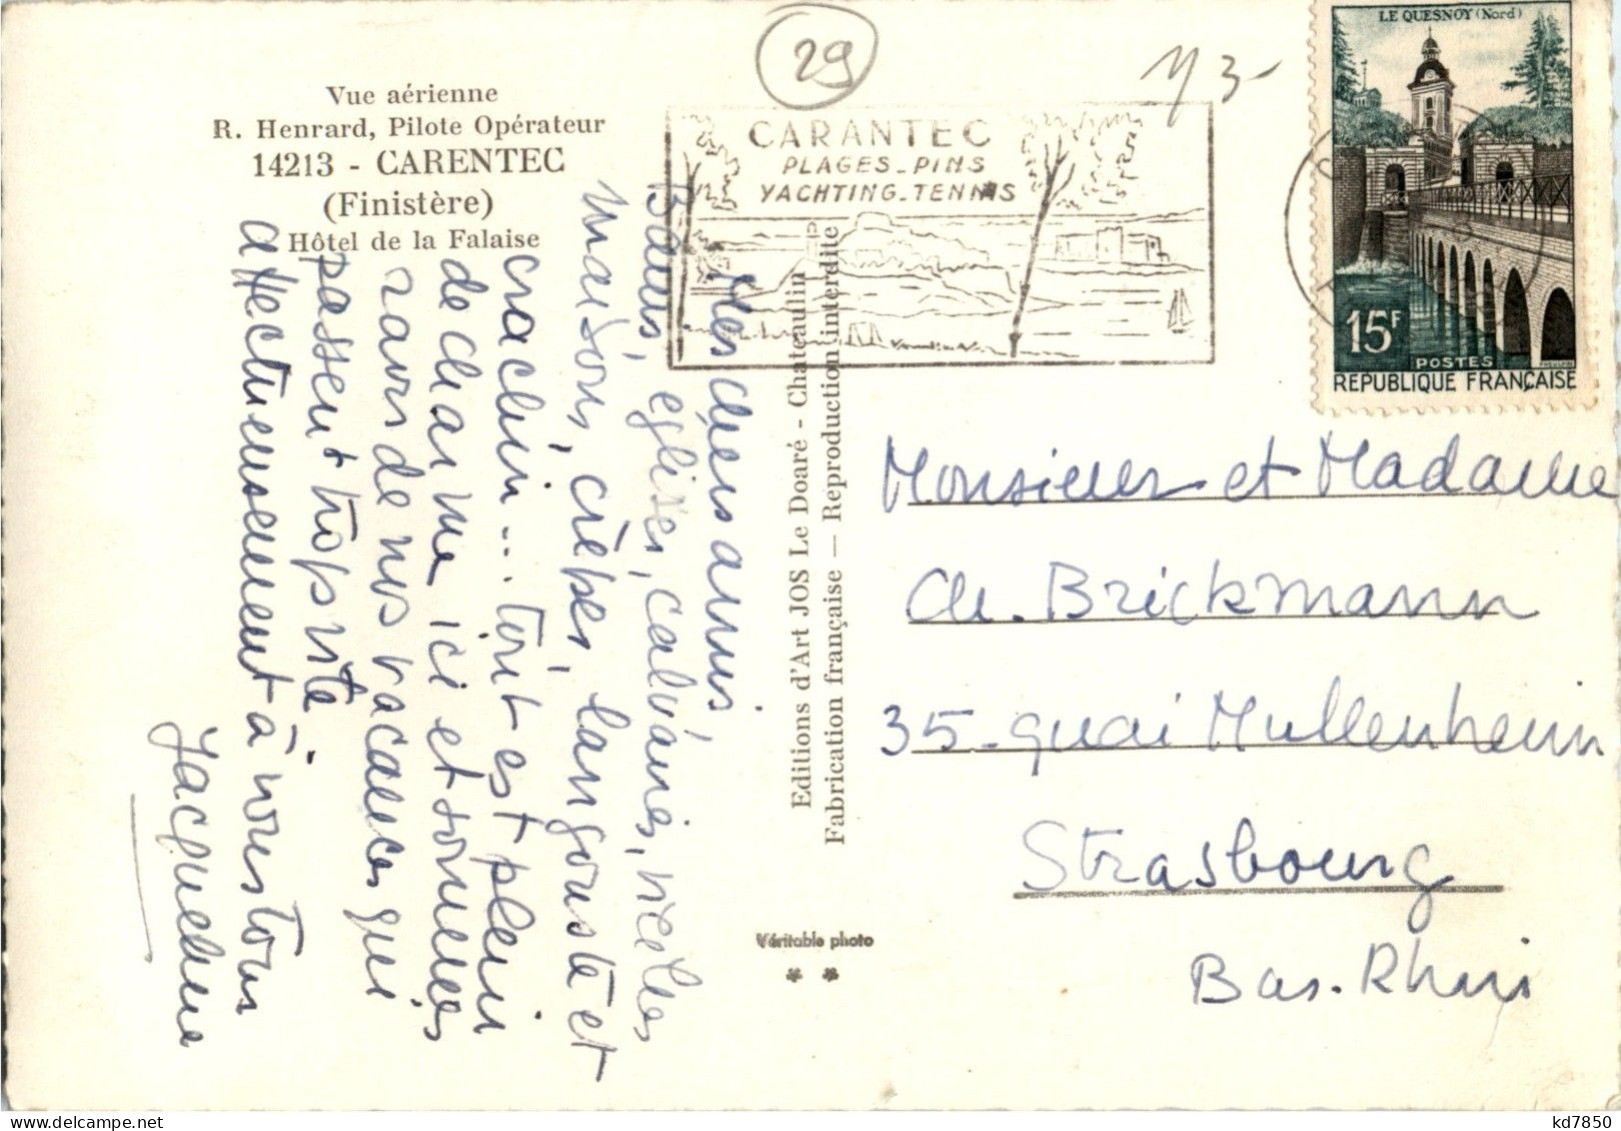 29
Vue aérienne
R. Henrard, Pilote Opérateur
14213 - CARENTEC
(Finistère)
Hôtel de la Falaise
CARANTEC
PLAGES_PINS
YACHTING_TENNIS
LE QUESNOY (Nord)
15F
POSTES
REPUBLIQUE FRANÇAISE
Mes chers amis,
Bains, eglises, calvaires, vieilles
maisons, crêpes, langouste et
crachin... tout est plein
de charme ici et sommes
ravis de nos vacances qui
passent trop vite
affectueusement à vous tous
Jacqueline
Editions d'Art JOS Le Doaré - Chateaulin
Fabrication française — Reproduction interdite
Véritable photo
* *
Monsieur et Madame
Ch. Brickmann
35 - quai Mullenheim
Strasbourg
Bas. Rhin
kd7850